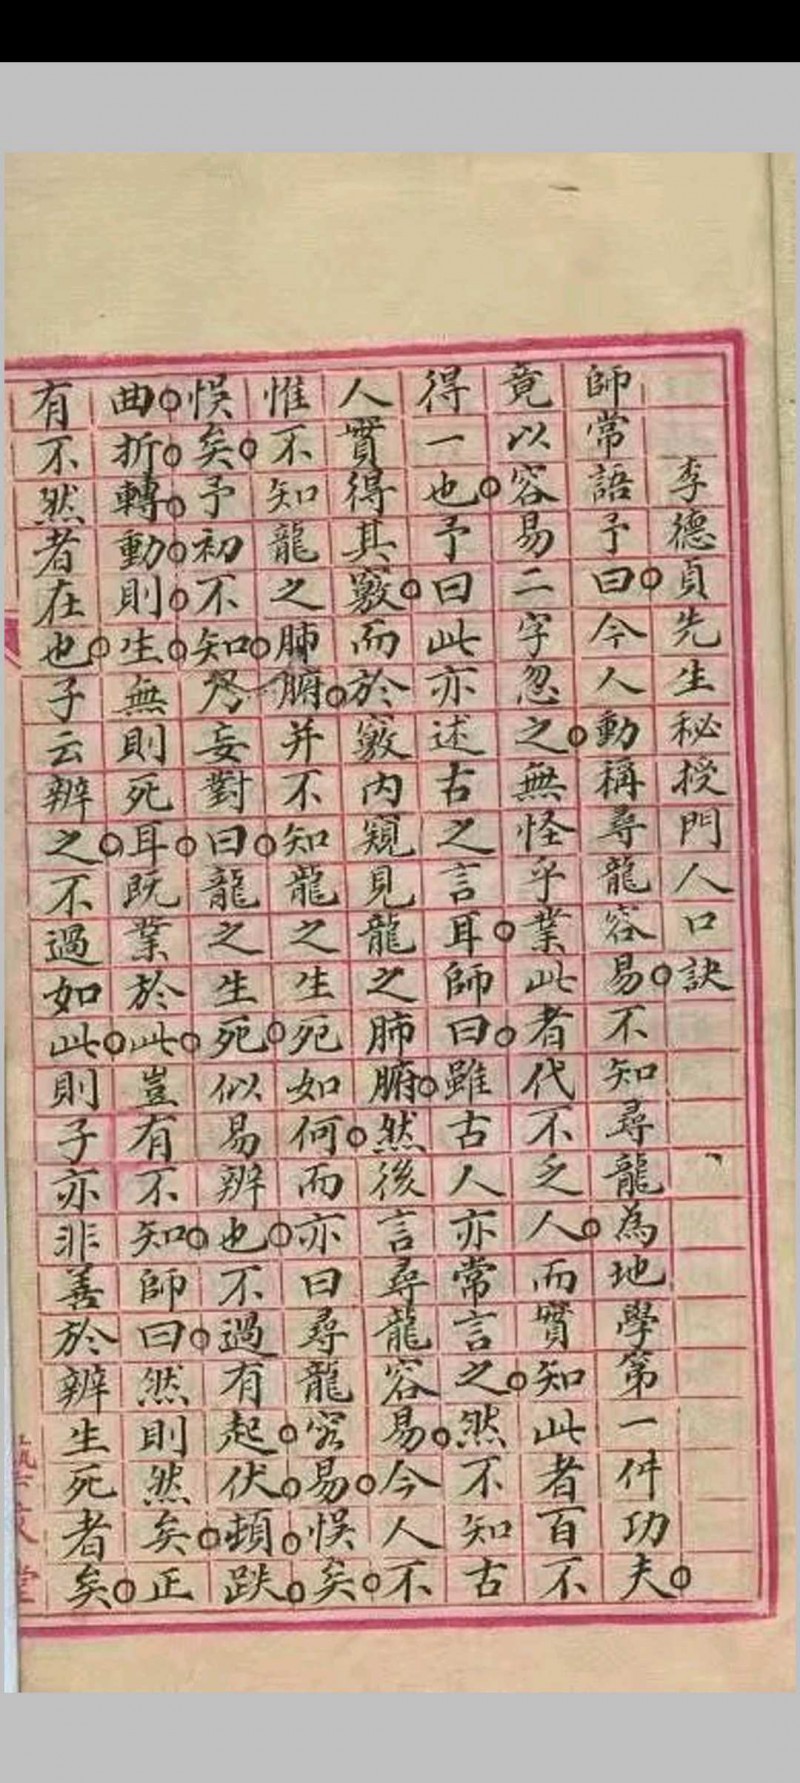 李德貞先生秘授門人口訣
師常語予曰今人動稱尋龍容易不知尋龍為地學第一件功夫
竟以容易二字忽之無怪乎業此者代不乏人而實知此者百不
得一也予曰此亦述古之言耳師曰雖古人亦常言之然不知古
人實得其竅而於竅內窺見龍之肺腑然後言尋龍容易今人不
惟不知龍之肺腑并不知龍之生死如何而亦曰尋龍容易悮矣
悮矣予初不知乃妄對曰龍之生死似易辨也不過有起伏頓跌
曲折轉動則生無則死耳既業於此豈有不知師曰然則然矣正
有不然者在也子云辨之不過如此則子亦非善於辨生死者矣